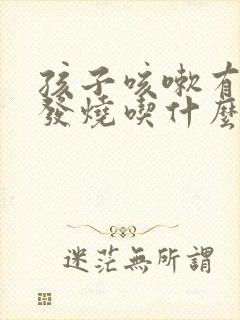 孩子咳嗽有
發燒喫什麼
迷茫無所謂